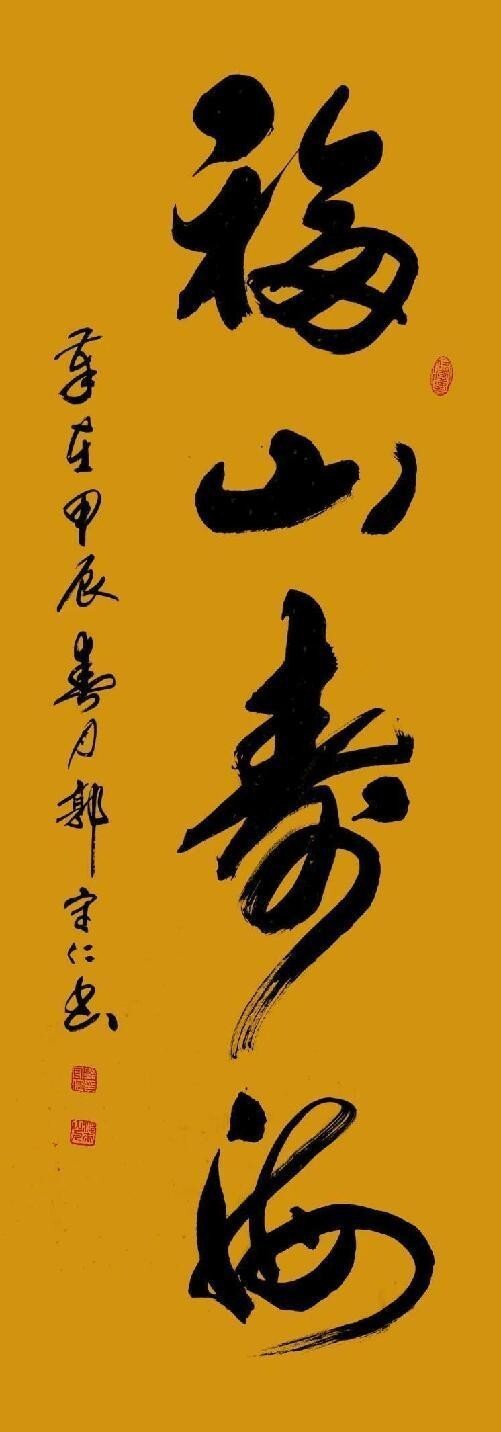 福山寿海
岁在甲辰春月郭守仁书